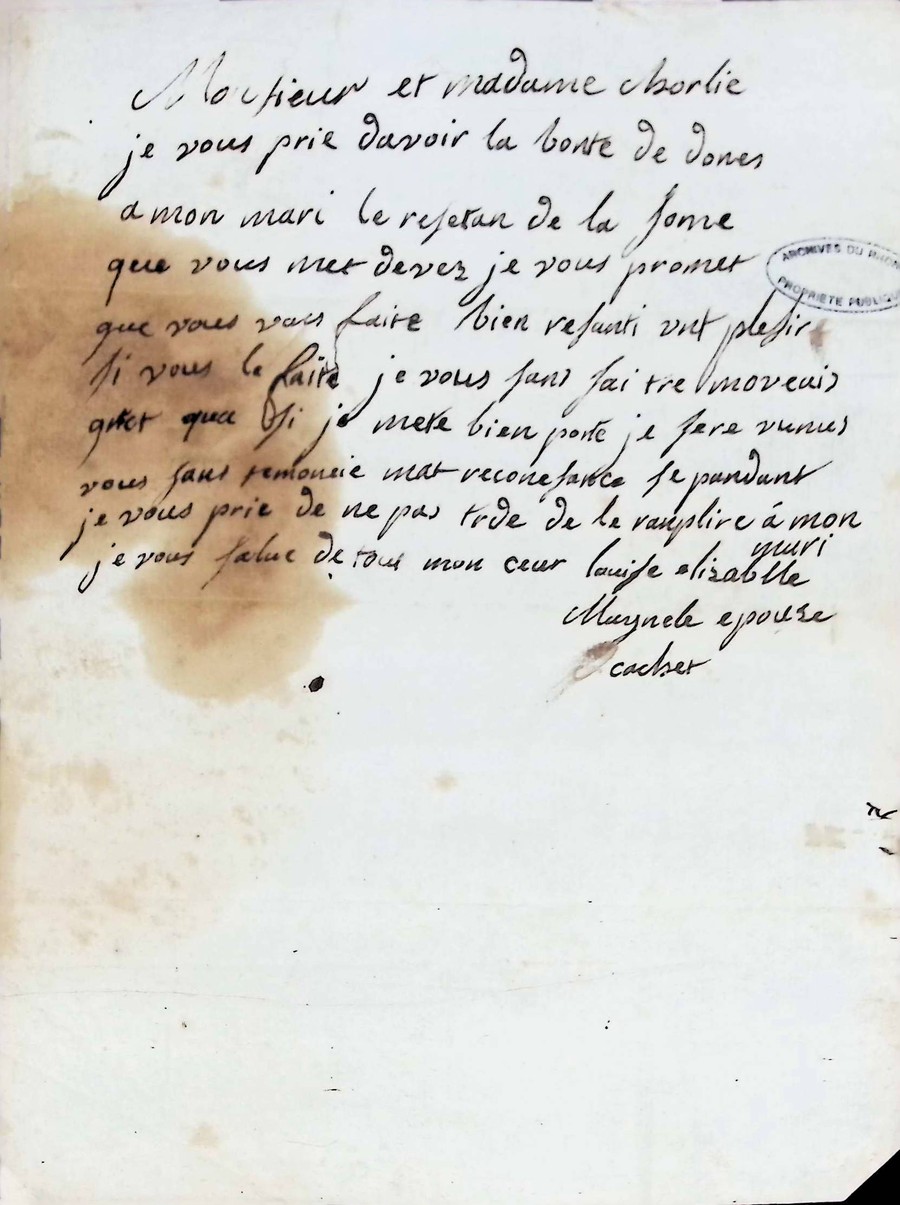 Monsieur et madame chorlie
je vous prie davoir la bonte de dones
a mon mari le resetan de la some
que vous met devez je vous promet
ARCHIVES DU RHÔN
PROPRIÉTÉ PUBLIQUE
que vous vous faite bien resanti unt plesir
si vous le faite je vous sans fai tre moveuis
que si je mete bien porte je sere venus
vous sans temoneie mat reconesance se pandant
je vous prie de ne pas trde de le ranplire á mon
mari
je vous salue de tous mon ceur louise elizablle
Maynele epouze
cachet